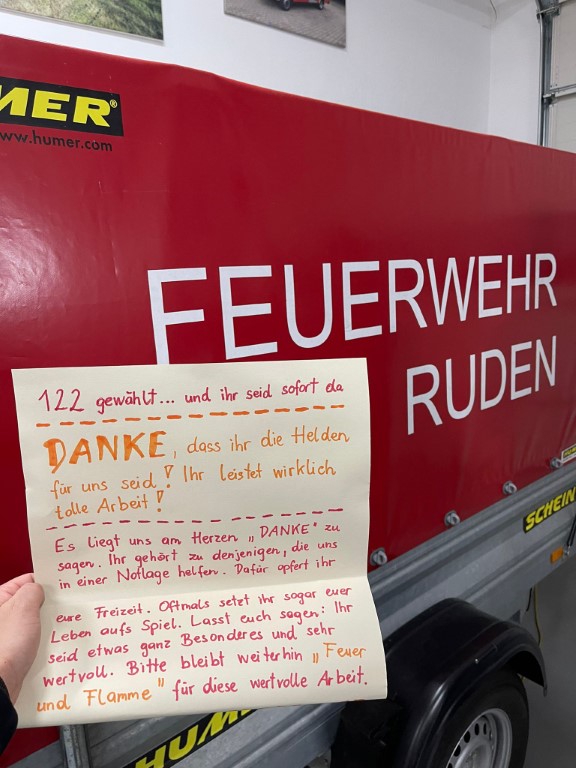 UMER®
www.humer.com
FEUERWEHR
RUDEN
122 gewählt... und ihr seid sofort da
DANKE, dass ihr die Helden
für uns seid! Ihr leistet wirklich
tolle Arbeit!
Es liegt uns am Herzen „DANKE" zu
sagen. Ihr gehört zu denjenigen, die uns
in einer Notlage helfen. Dafür opfert ihr
eure Freizeit. Oftmals setzt ihr sogar euer
Leben aufs Spiel. Lasst euch sagen: Ihr
seid etwas ganz Besonderes und sehr
wertvoll. Bitte bleibt weiterhin „Feuer
und Flamme" für diese wertvolle Arbeit.
SCHEIN
HUMER